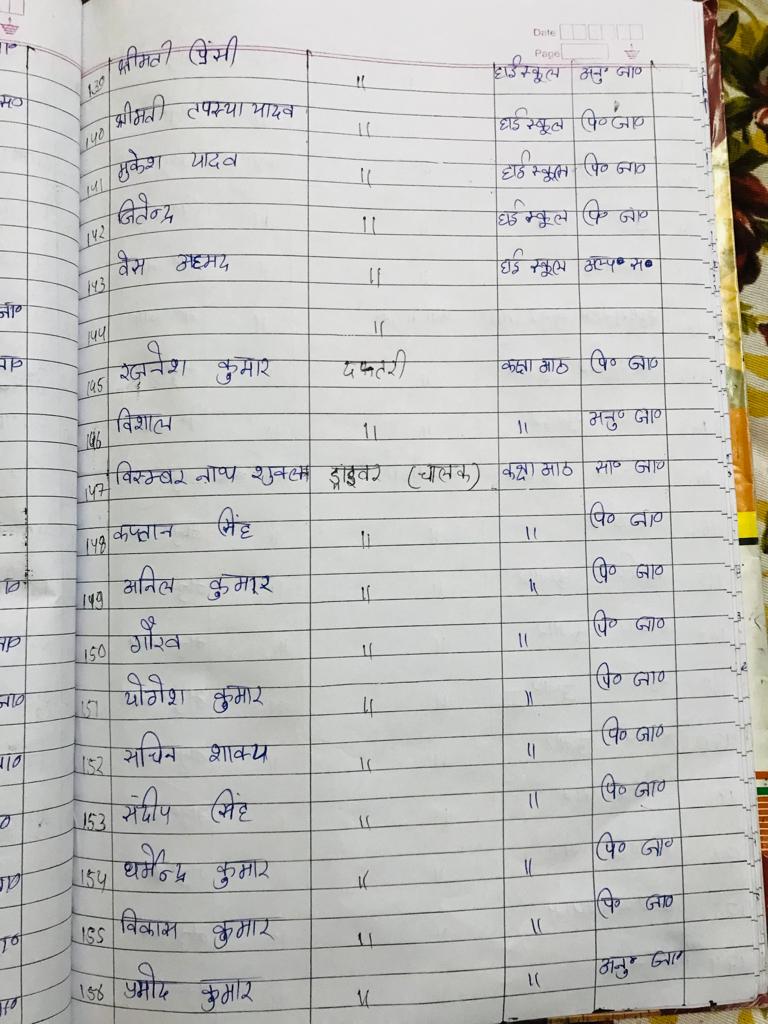 Date
Page
139 श्रीमती प्रिंसी " हाई स्कूल अनु० जा०
140 श्रीमती तपस्या यादव " हाई स्कूल पि० जा०
141 मुकेश यादव " हाई स्कूल पि० जा०
142 जितेन्द्र " हाई स्कूल पि० जा०
143 वेस अहमद " हाई स्कूल अल्प० स०
144 "
145 रजनेश कुमार दफ्तरी कक्षा आठ पि० जा०
146 विशाल " " अनु० जा०
147 विस्म्बर नाथ शुक्ला ड्राइवर (चालक) कक्षा आठ सा० जा०
148 कप्तान सिंह " " पि० जा०
149 अनिल कुमार " " पि० जा०
150 गौरव " " पि० जा०
151 योगेश कुमार " " पि० जा०
152 सचिन शाक्य " " पि० जा०
153 संदीप सिंह " " पि० जा०
154 धर्मेन्द्र कुमार " " पि० जा०
155 विकास कुमार " " पि० जा०
156 प्रमोद कुमार " " अनु० जा०